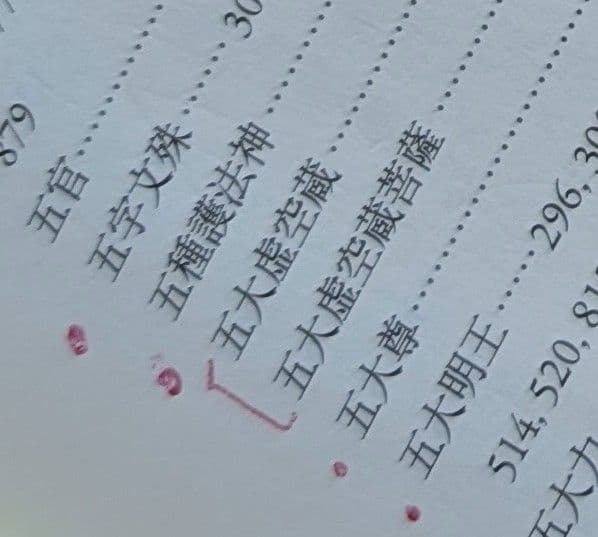 879
五官
五字文殊 30
五種護法神
五大虚空蔵
五大虚空蔵菩薩
五大尊
五大明王 296, 30
514, 520, 81
五大力